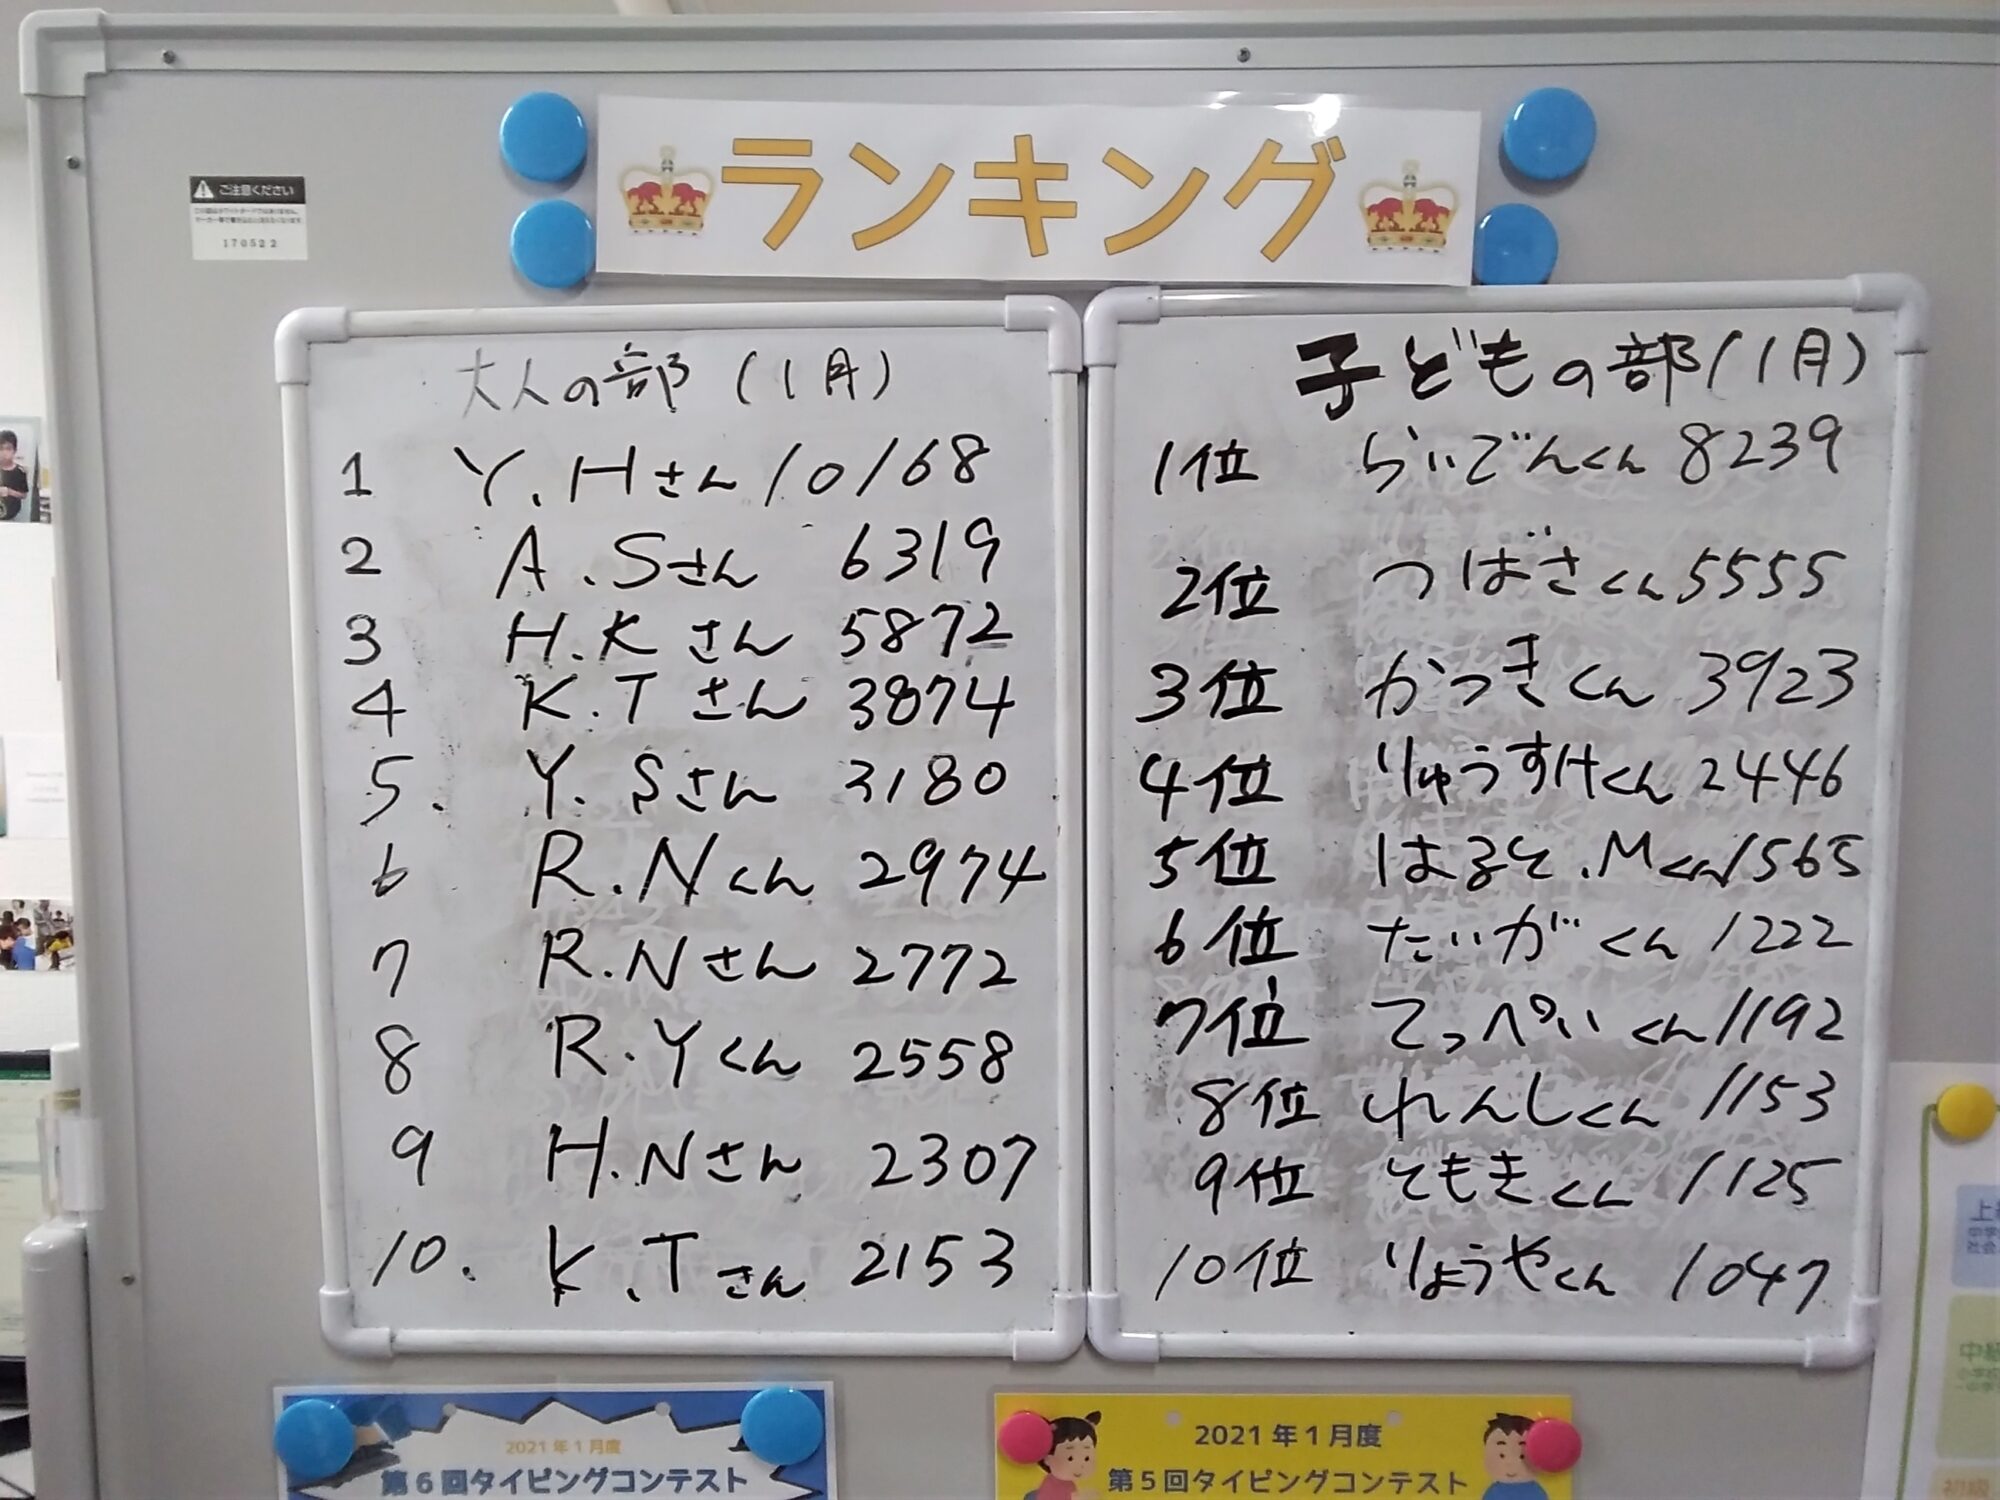 ランキング
ご注意ください
170522
大人の部 (1月)
1 Y.Hさん 10168
2 A.Sさん 6319
3 H.Kさん 5872
4 K.Tさん 3874
5. Y.Sさん 3180
6 R.Nくん 2974
7 R.Nさん 2772
8 R.Yくん 2558
9 H.Nさん 2307
10. K.Tさん 2153
子どもの部(1月)
1位 らいでんくん 8239
2位 つばさくん 5555
3位 かつきくん 3923
4位 りゅうすけくん 2446
5位 はると.Mくん 1565
6位 たいがくん 1222
7位 てっぺいくん 1192
8位 れんしくん 1153
9位 ともきくん 1125
10位 りょうやくん 1047
2021年1月度
第6回タイピングコンテスト
2021年1月度
第5回タイピングコンテスト